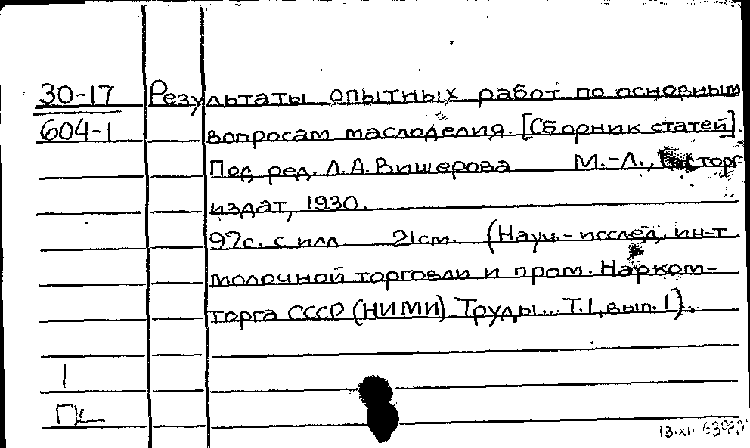 30-17 Результаты опытных работ по основным
604-1 вопросам маслоделия. [Сборник статей].
Под ред. Л.А. Вишерова М.-Л., Госторг
издат, 1930.
97с. с илл 21см. (Науч.-исслед. ин-т
молочной торговли и пром. Нарком-
торга СССР (НИМИ) Труды... Т.1, вып. 1).
1
13.XI.